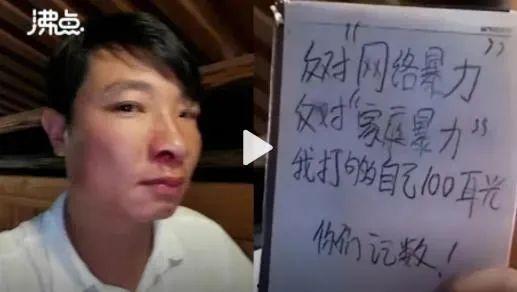 沸点
反对“网络暴力”
反对“家庭暴力”
我打够自己100耳光
你们记数!